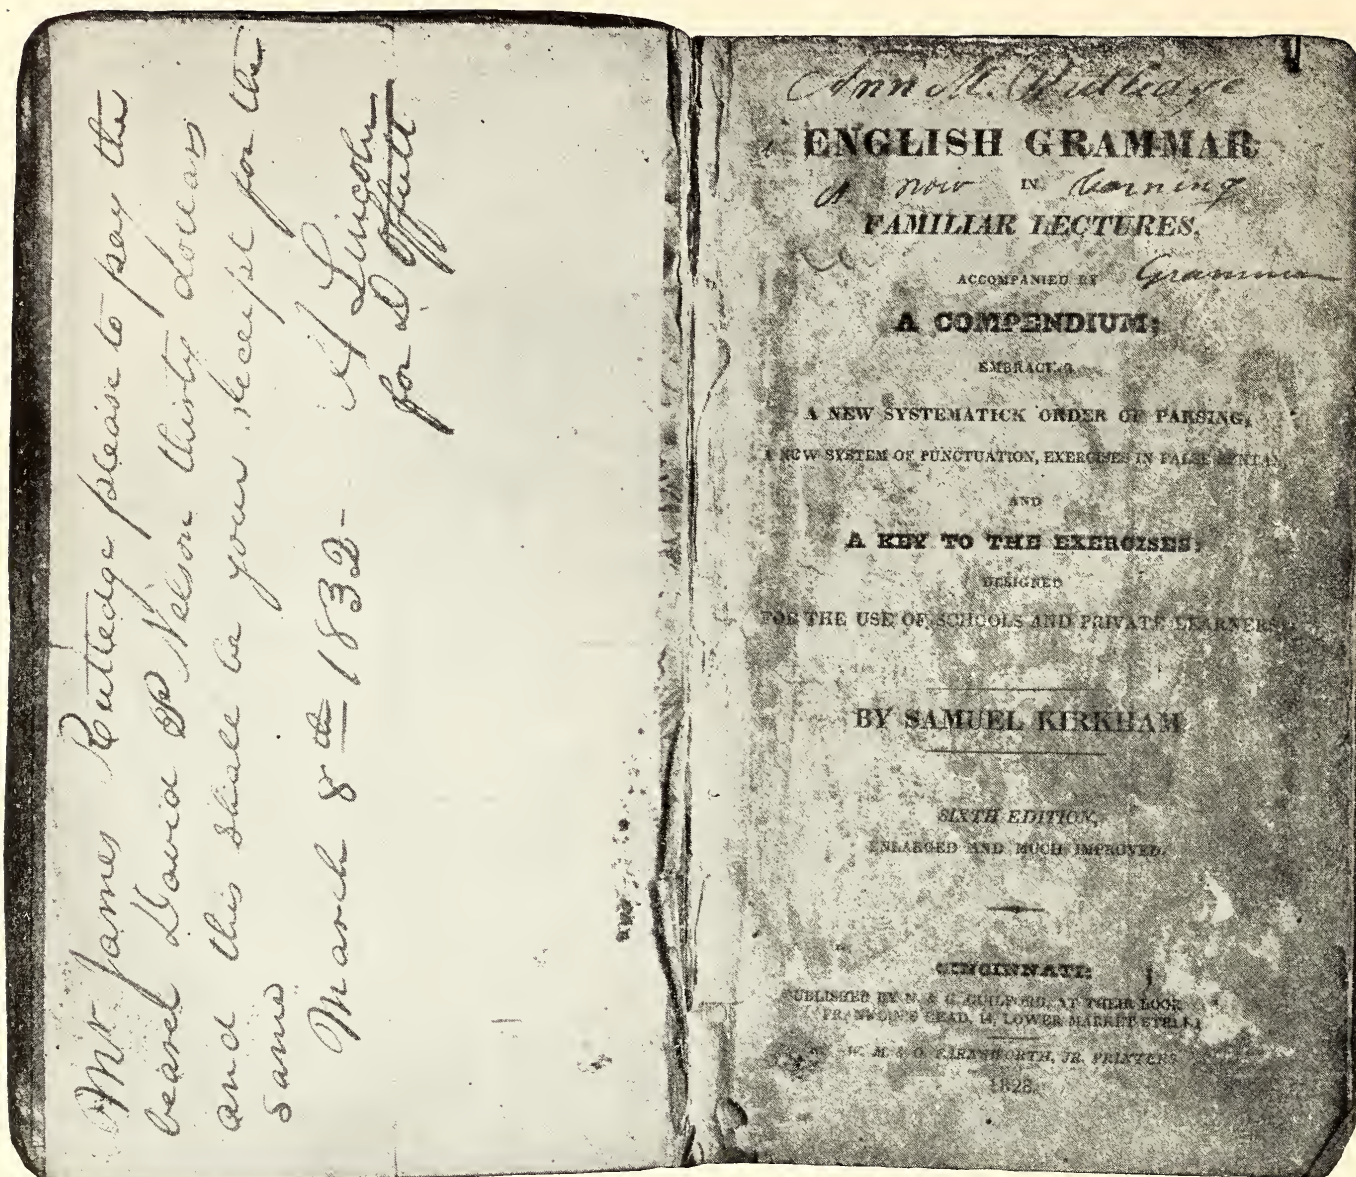 Mr James Rutledge please to pay the
bearer David P Nelson thirty dollars
and this shall be your receipt for the
same
March 8th 1832 -
A Lincoln
for D Offutt
Ann M. Rutledge
ENGLISH GRAMMAR
is now IN learning
FAMILIAR LECTURES,
ACCOMPANIED BY Grammar
A COMPENDIUM;
EMBRACING
A NEW SYSTEMATICK ORDER OF PARSING,
A NEW SYSTEM OF PUNCTUATION, EXERCISES IN FALSE SYNTAX,
AND
A KEY TO THE EXERCISES;
DESIGNED
FOR THE USE OF SCHOOLS AND PRIVATE LEARNERS.
BY SAMUEL KIRKHAM
SIXTH EDITION,
ENLARGED AND MUCH IMPROVED.
CINCINNATI:
PUBLISHED BY N. & G. GUILFORD, AT THEIR BOOK
FRANKLIN'S HEAD, 14, LOWER MARKET STREET
W. M. & O. FARNSWORTH, JR. PRINTERS
1828.